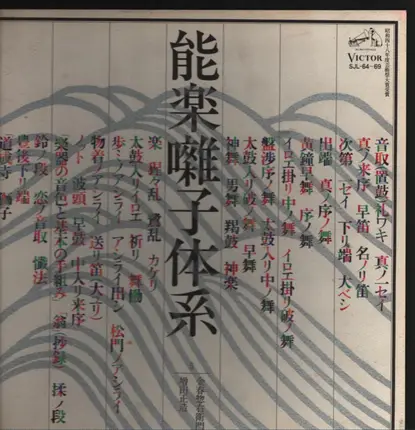 昭和四十八年度芸術祭大賞受賞
VICTOR
SJL-64~69
能楽囃子体系
音取置鼓(礼ワキ 真ノ一セイ
真ノ来序 早笛 名ノリ笛
次第 一セイ 下リ端 大ベシ
出端 真ノ序ノ舞
黄鐘早舞 序ノ舞
イロエ掛リ中ノ舞 イロエ掛リ破ノ舞
盤渉序ノ舞 太鼓入リ中ノ舞
太鼓入リ破ノ舞 早舞
神舞 男舞 羯鼓 神楽
楽 猩々乱 鷺乱 カケリ
太鼓入リイロエ 祈リ 舞働
歩ミノアシライ アシライ出シ 松門ノアシライ
物着ノアシライ 送リ笛(大主リ)
ノット 波頭 早鼓 中入リ来序
(楽器の音色)と基本の手組み) 翁(抄録) 揉ノ段
鈴ノ段 恋ノ音取 懺法
豊後下リ端
道成寺 獅子
金春惣右衛門
増田正造